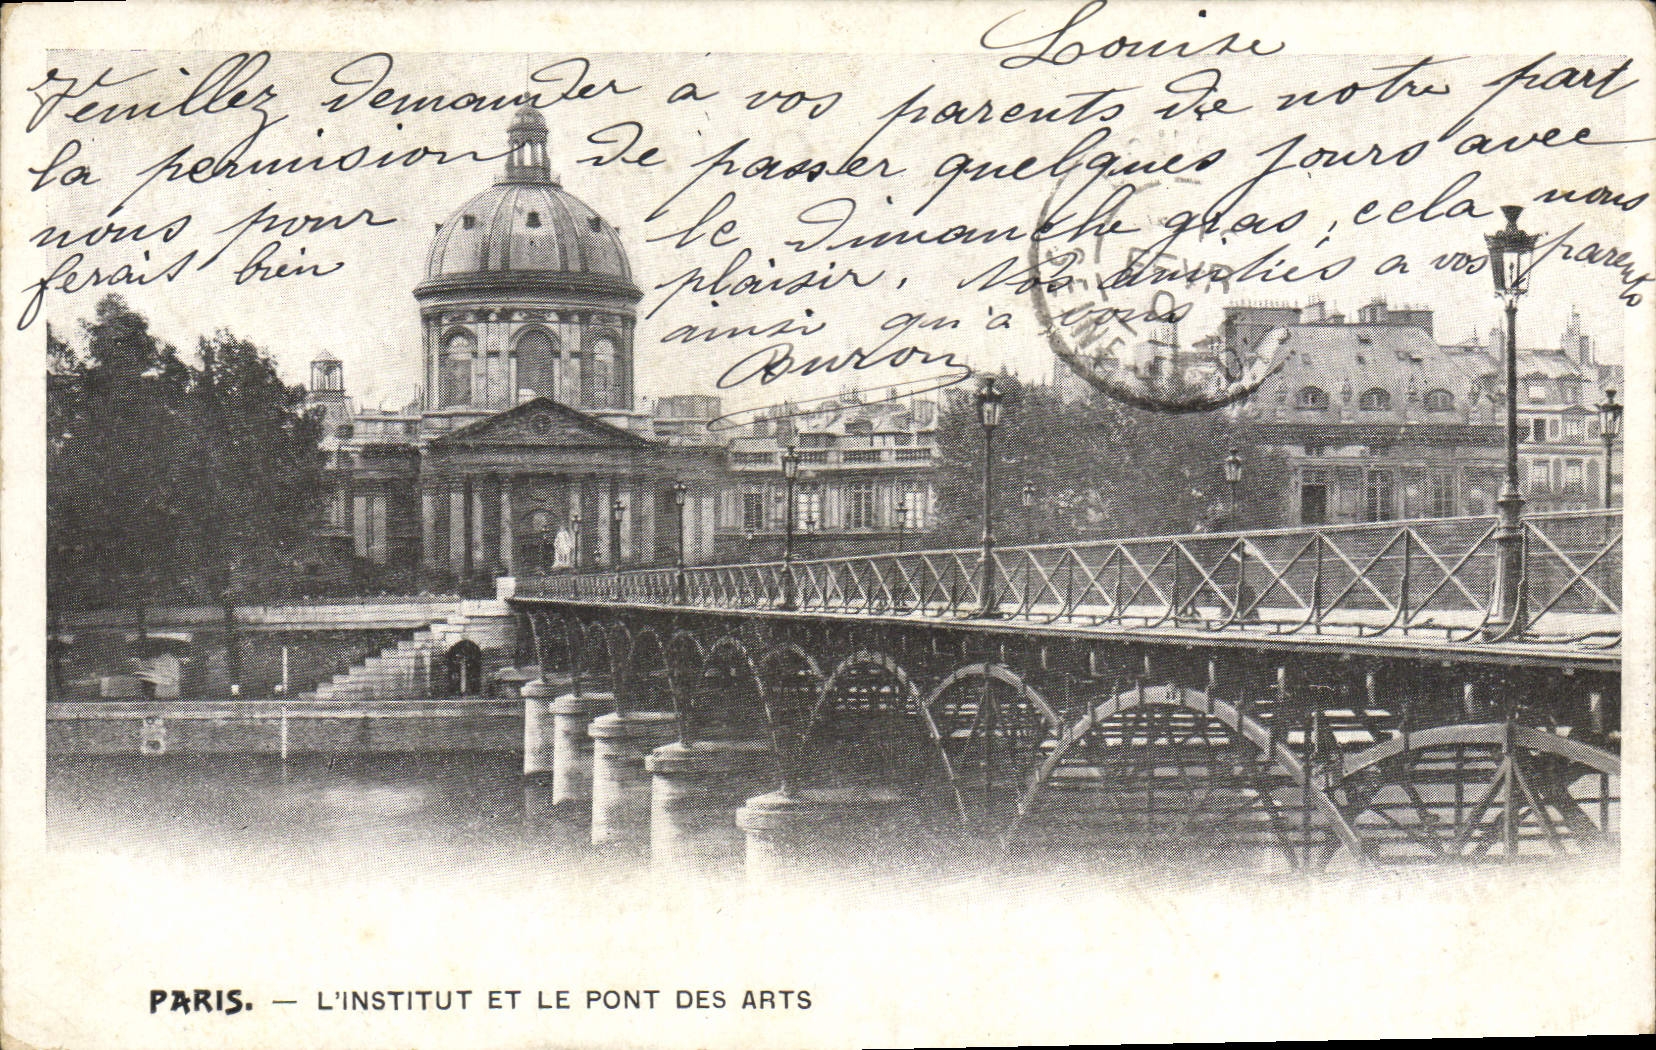 Louise
Veuillez demander a vos parents de notre part
la permision de passer quelques jours avec
nous pour le dimanche gras, cela nous
ferait bien plaisir. Nos amitiés a vos parents
ainsi qu'à vous
Buron
FEVR
PARIS. — L'INSTITUT ET LE PONT DES ARTS